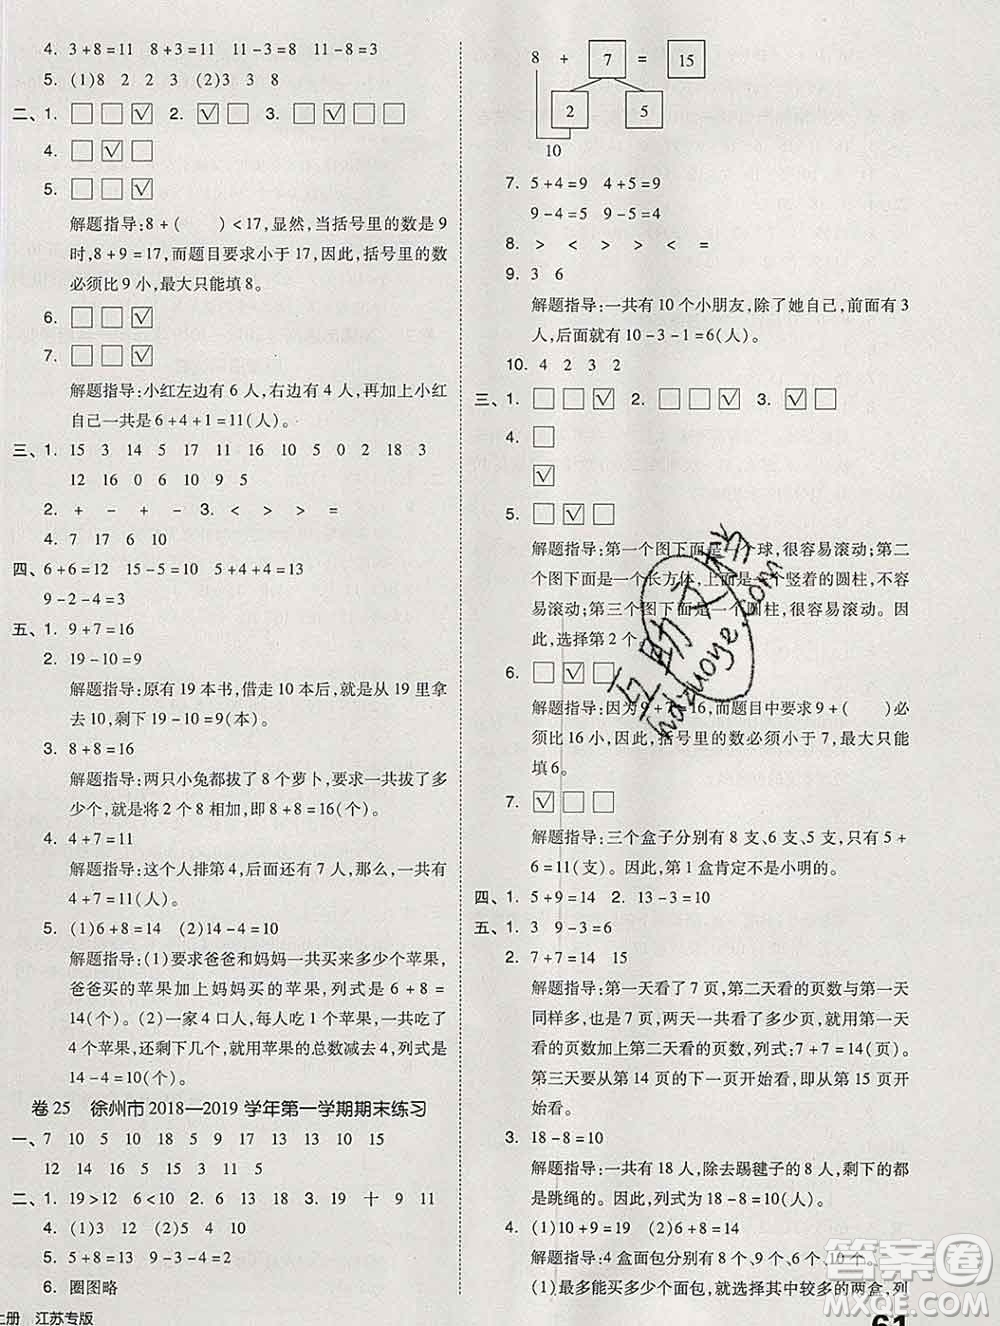 4. 3+8=11 8+3=11 11-3=8 11-8=3
5. (1)8 2 2 2 (2)3 3 8
二、1. □ □ ☑ 2. ☑ □ 3. □ ☑ □ □
4. □ ☑ □
5. □ □ ☑
解题指导:8+( )<17,显然,当括号里的数是9
时,8+9=17,而题目要求小于17,因此,括号里的数
必须比9小,最大只能填8。
6. □ □ ☑
7. □ □ ☑
解题指导:小红左边有6人,右边有4人,再加上小红
自己一共是6+4+1=11(人)。
三、1. 15 3 14 5 17 11 16 10 5 0 2 18 3
16 2 2 12 6 10 9 5
2. + - + - 3. < > > =
4. 7 17 6 10
四、6+6=12 15-5=10 5+4+4=13
9-2-4=3
五、1. 9+7=16
2. 19-10=9
解题指导:原有19本书,借走10本后,就是从19里拿
去10,剩下19-10=9(本)。
3. 8+8=16
解题指导:两只小兔都拔了8个萝卜,要求一共拔了多
少个,就是将2个8相加,即8+8=16(个)。
4. 4+7=11
解题指导:这个人排第4,后面还有7人,因此一共有
4+7=11(人)。
5. (1)6+8=14 (2)14-4=10
解题指导:(1)要求爸爸和妈妈一共买多少个苹果,
爸爸买的苹果加上妈妈买的苹果,列式是6+8=
14(个)。(2)一家4口人,每人吃1个苹果,一共吃4
个苹果,还剩下几个,就用苹果的总数减去4,列式是
14-4=10(个)。
卷25 徐州市2018—2019学年第一学期期末练习
一、7 10 5 10 18 5 9 17 13 10 15
12 14 16 15 6 19 13 11 5
二、1. 19>12 6<10 2. 9 10 3. 19 十 9 11
4. (1)3 12 (2)5 (3)5 9
5. 5+8=13 15-9-4=2
6. 圈图略
上册 江苏专版
8 + 7 = 15
2 5
10
7. 5+4=9 4+5=9
9-4=5 9-5=4
8. > < > > < =
9. 3 6
解题指导:一共有10个小朋友,除了她自己,前面有3
人,后面就有10-3-1=6(人)。
10. 4 2 3 2
三、1. □ □ ☑ 2. □ □ ☑ 3. ☑ □
4. □
☑
5. □ ☑ □
解题指导:第一个图下面是一个球,很容易滚动;第二
个图下面是一个长方体,上面是一个竖着的圆柱,不容
易滚动;第三个图下面是一个圆柱,很容易滚动。因
此,选择第2个。
6. □ ☑ □
解题指导:因为9+7=16,而题目中要求9+( )必
须比16小,因此,括号里的数必须小于7,最大只能
填6。
7. ☑ □ □
解题指导:三个盒子分别有8支、6支、5支,只有5+
6=11(支)。因此,第1盒肯定不是小明的。
四、1. 5+9=14 2. 13-3=10
五、1. 3 9-3=6
2. 7+7=14 15
解题指导:第一天看了7页,第二天看的页数与第一天
同样多,也是7页,两天一共看了多少页,就用第一天
看的页数加上第二天看的页数,列式:7+7=14(页)。
看完了14页,第三天应从第15页看起。
3. 18-8=10
解题指导:一共有18人,除去踢毽子的8人,剩下的都
是跳绳的。因此,跳绳的有18-8=10(人)。
4. (1)10+9=19 (2)6+8=14
解题指导:4盒面包分别有8个、9个、10个、6个。
(1)最多能买多少个面包,就选择其中较多的两盒,列
61
互助文档
hdzuoye.com
答案圈
MXQE.COM